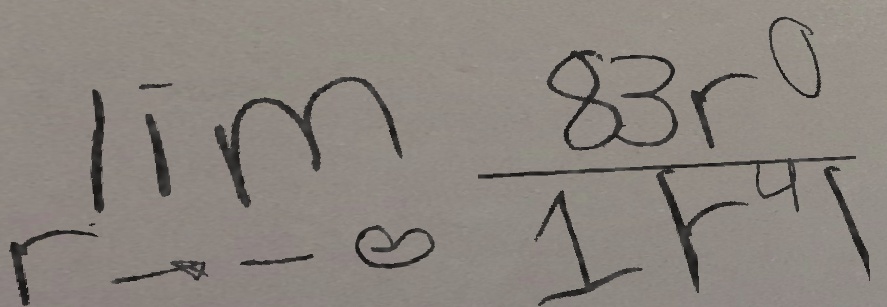 lim 83r^0
r→-∞ 1r^41